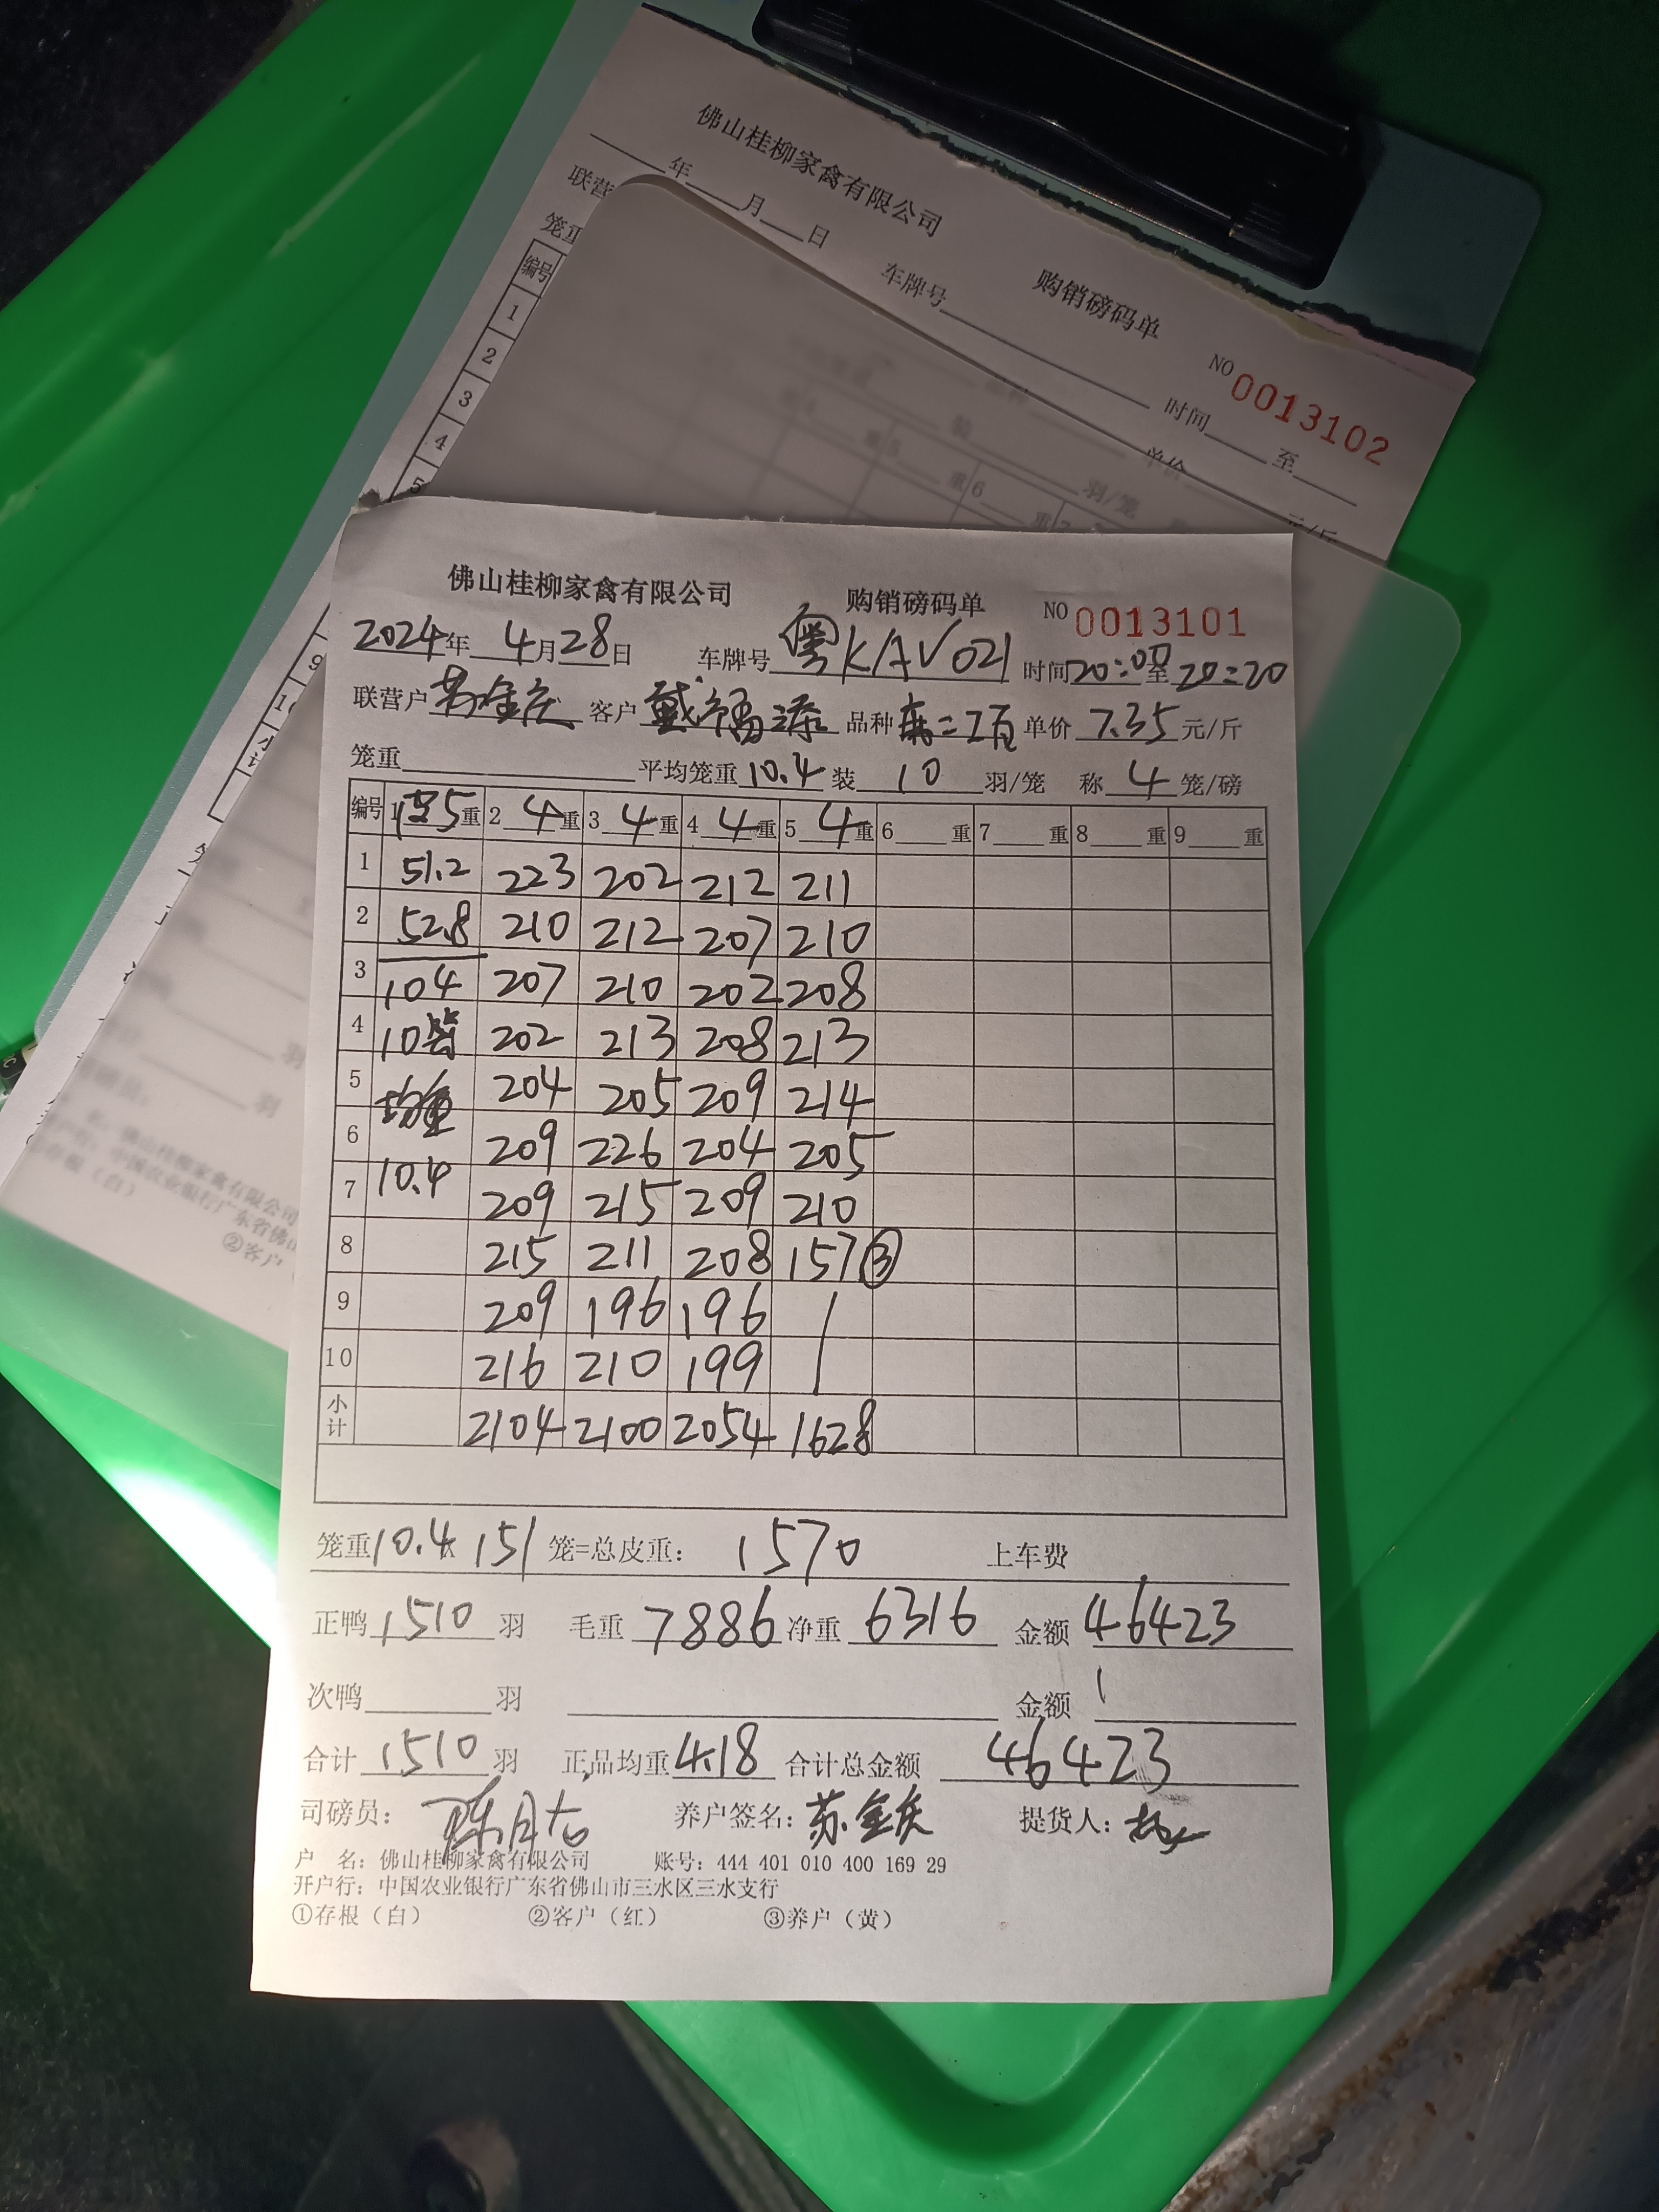 佛山桂柳家禽有限公司
购销磅码单
NO 0013102
年 月 日
车牌号 时间 至
联营
单价 元/斤
笼重
编号
1
2
3
4
5
9
小计
佛山桂柳家禽有限公司 购销磅码单 NO 0013101
2024年 4月28日 车牌号 粤KAV021 时间20:00至20:20
联营户 苏金庆 客户 戴福添 品种 单价 7.35 元/斤
笼重 平均笼重10.4 装 10 羽/笼 称 4 笼/磅
编号 1 空5重 2 4重 3 4重 4 4重 5 4重 6 重 7 重 8 重 9 重
1 51.2 223 202 212 211
2 52.8 210 212 207 210
3 104 207 210 202 208
4 10 202 213 208 213
5 均重 204 205 209 214
6 209 226 204 205
7 10.4 209 215 209 210
8 215 211 208 157③
9 209 196 196
10 216 210 199
小计 2104 2100 2054 1628
笼重10.4x 151 笼=总皮重: 1570 上车费
正鸭 1510 羽 毛重 7886 净重 6316 金额 46423
次鸭 羽 金额
合计 1510 羽 正品均重 4.18 合计总金额 46423
司磅员: 养户签名: 苏金庆 提货人:
户 名: 佛山桂柳家禽有限公司 账号: 444 401 010 400 169 29
开户行: 中国农业银行广东省佛山市三水区三水支行
①存根（白） ②客户（红） ③养户（黄）